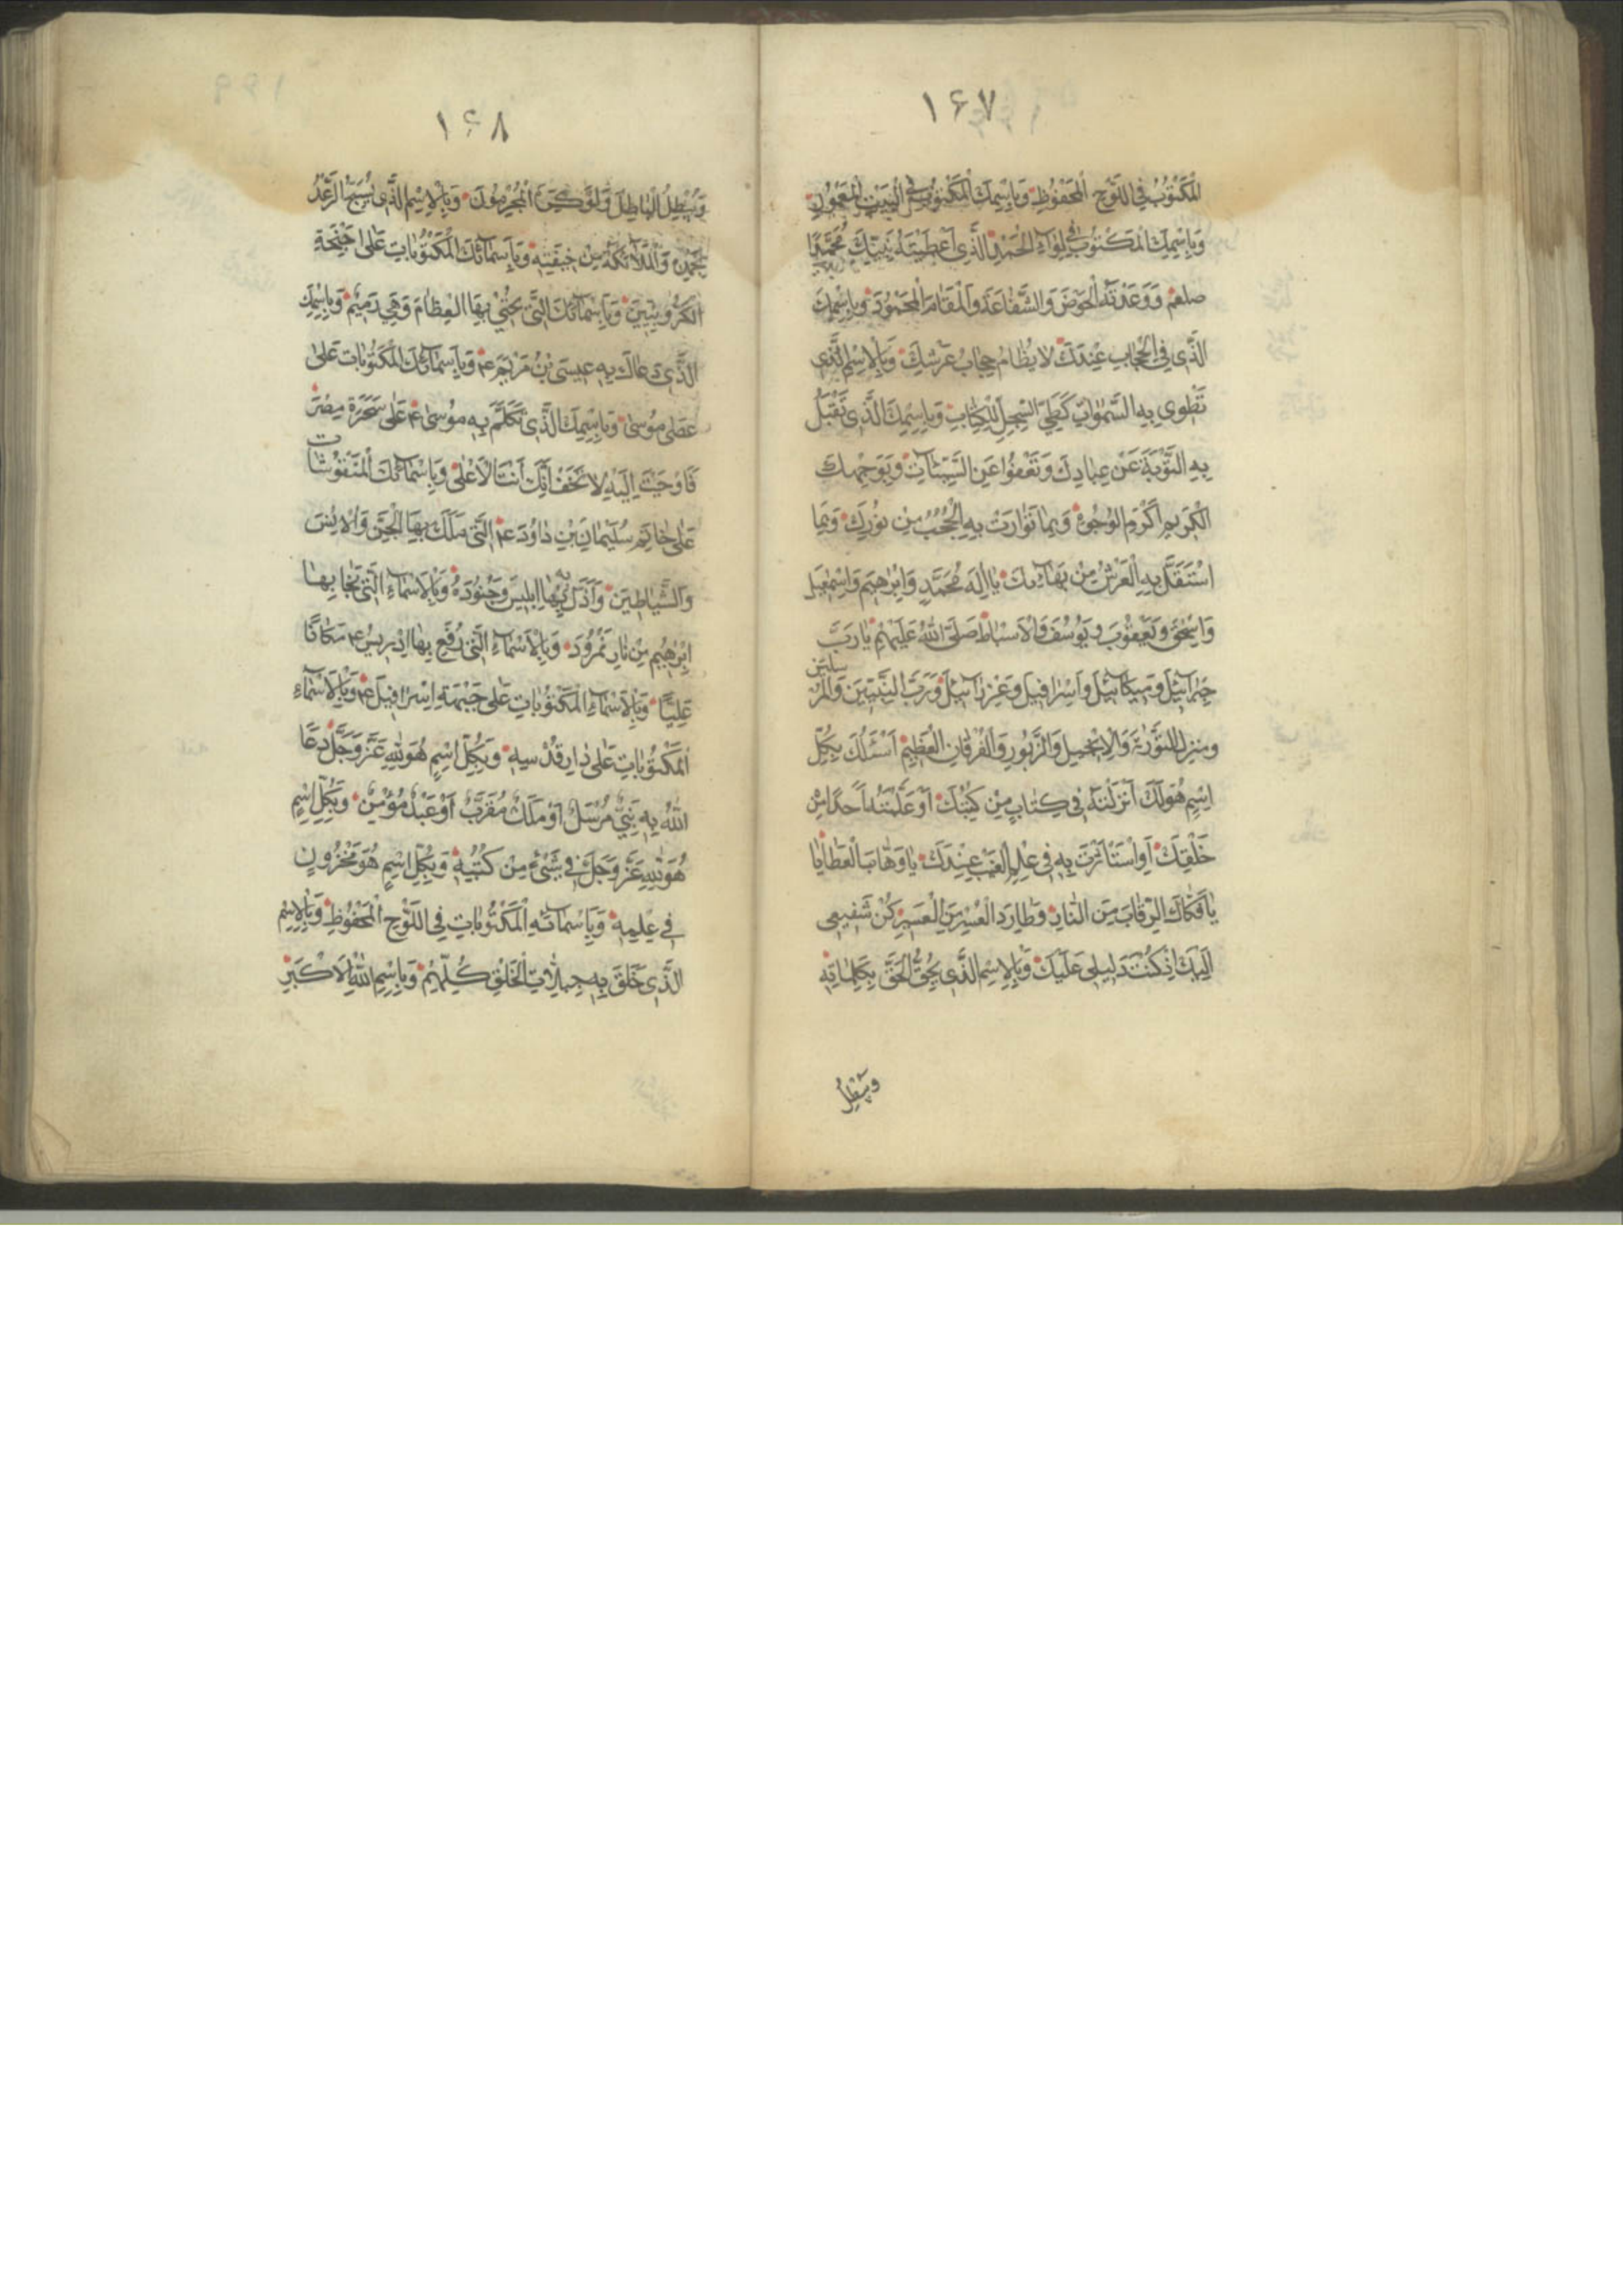 ۱۶۷
الْمَكْتُوبُ فِي اللَّوْحِ الْمَحْفُوظِ وَبِاسْمِكَ الْمَكْتُوبِ فِي الْبَيْتِ الْمَعْمُورِ
وَبِاسْمِكَ الْمَكْتُوبِ فِي لِوَاءِ الْحَمْدِ الَّذِي اَعْطَيْتَهُ نَبِيَّكَ مُحَمَّدًا
صلعم وَوَعَدْتَهُ الْحَوْضَ وَالشَّفَاعَةَ وَالْمَقَامَ الْمَحْمُودَ وَبِاسْمِكَ
الَّذِي فِي الْحِجَابِ عِنْدَكَ لَا يُضَامُ حِجَابُ عَرْشِكَ وَبِالْاِسْمِ الَّذِي
تَطْوِي بِهِ السَّمٰوَاتِ كَطَيِّ السِّجِلِّ لِلْكِتَابِ وَبِاسْمِكَ الَّذِي تَقْبَلُ
بِهِ التَّوْبَةَ عَنْ عِبَادِكَ وَتَعْفُوا عَنِ السَّيِّئَاتِ وَبِوَجْهِكَ
الْكَرِيمِ اَكْرَمِ الْوُجُوهِ وَبِمَا تَوَارَتْ بِهِ الْحُجُبُ مِنْ نُورِكَ وَبِمَا
اسْتَقَلَّ بِهِ الْعَرْشُ مِنْ بَهَائِكَ يَا اِلٰهَ مُحَمَّدٍ وَاِبْرٰهِيمَ وَاِسْمٰعِيلَ
وَاِسْحٰقَ وَيَعْقُوبَ وَيُوسُفَ وَالْاَسْبَاطِ صَلَّى اللّٰهُ عَلَيْهِمْ يَا رَبَّ
جِبْرَائِيلَ وَمِيكَائِيلَ وَاِسْرَافِيلَ وَعِزْرَائِيلَ وَرَبَّ النَّبِيِّينَ وَالْمُرْسَلِينَ
وَمُنْزِلَ التَّوْرٰيةِ وَالْاِنْجِيلِ وَالزَّبُورِ وَالْفُرْقَانِ الْعَظِيمِ اَسْئَلُكَ بِكُلِّ
اِسْمٍ هُوَ لَكَ اَنْزَلْتَهُ فِي كِتَابٍ مِنْ كُتُبِكَ اَوْ عَلَّمْتَهُ اَحَدًا مِنْ
خَلْقِكَ اَوِ اسْتَأْثَرْتَ بِهِ فِي عِلْمِ الْغَيْبِ عِنْدَكَ يَا وَهَّابَ الْعَطَايَا
يَا فَكَّاكَ الرِّقَابِ مِنَ النَّارِ وَطَارِدَ الْعُسْرِ مِنَ الْعَسِيرِ كُنْ شَفِيعِي
اِلَيْكَ اِذْ كُنْتَ دَلِيلِي عَلَيْكَ وَبِالْاِسْمِ الَّذِي يُحِقُّ الْحَقَّ بِكَلِمَاتِهِ
وَيُبْطِلُ
۱۶۸
وَيُبْطِلُ الْبَاطِلَ وَلَوْ كَرِهَ الْمُجْرِمُونَ وَبِالْاِسْمِ الَّذِي يُسَبِّحُ الرَّعْدُ
بِحَمْدِهِ وَالْمَلَائِكَةُ مِنْ خِيفَتِهِ وَبِاَسْمَائِكَ الْمَكْتُوبَاتِ عَلَى اَجْنِحَةِ
الْكَرُّوبِيِّينَ وَبِاَسْمَائِكَ الَّتِي تُحْيِي بِهَا الْعِظَامَ وَهِيَ رَمِيمٌ وَبِاسْمِكَ
الَّذِي دَعَاكَ بِهِ عِيسَى بْنُ مَرْيَمَ ع وَبِاَسْمَائِكَ الْمَكْتُوبَاتِ عَلَى
عَصَى مُوسَى وَبِاسْمِكَ الَّذِي تَكَلَّمَ بِهِ مُوسَى ع عَلَى سَحَرَةِ مِصْرَ
فَاَوْحَيْتَ اِلَيْهِ لَا تَخَفْ اِنَّكَ اَنْتَ الْاَعْلَى وَبِاَسْمَائِكَ الْمَنْقُوشَاتِ
عَلَى خَاتَمِ سُلَيْمَانَ بْنِ دَاوُدَ ع الَّتِي مَلَكَ بِهَا الْجِنَّ وَالْاِنْسَ
وَالشَّيَاطِينَ وَاَذَلَّ بِهَا اِبْلِيسَ وَجُنُودَهُ وَبِالْاَسْمَاءِ الَّتِي نَجَا بِهَا
اِبْرٰهِيمُ مِنْ نَارِ نَمْرُودَ وَبِالْاَسْمَاءِ الَّتِي رُفِعَ بِهَا اِدْرِيسُ ع مَكَانًا
عَلِيًّا وَبِالْاَسْمَاءِ الْمَكْتُوبَاتِ عَلَى جَبْهَةِ اِسْرَافِيلَ ع وَبِالْاَسْمَاءِ
الْمَكْتُوبَاتِ عَلَى دَارِ قُدْسِهِ وَبِكُلِّ اسْمٍ هُوَ لِلّٰهِ عَزَّ وَجَلَّ دَعَا
اللّٰهَ بِهِ نَبِيٌّ مُرْسَلٌ اَوْ مَلَكٌ مُقَرَّبٌ اَوْ عَبْدٌ مُؤْمِنٌ وَبِكُلِّ اسْمٍ
هُوَ لِلّٰهِ عَزَّ وَجَلَّ فِي شَيْءٍ مِنْ كُتُبِهِ وَبِكُلِّ اسْمٍ هُوَ مَخْزُونٍ
فِي عِلْمِهِ وَبِاَسْمَائِهِ الْمَكْتُوبَاتِ فِي اللَّوْحِ الْمَحْفُوظِ وَبِالْاِسْمِ
الَّذِي خَلَقَ بِهِ جِبِلَّاتِ الْخَلْقِ كُلِّهِمْ وَبِاسْمِ اللّٰهِ الْاَكْبَرِ